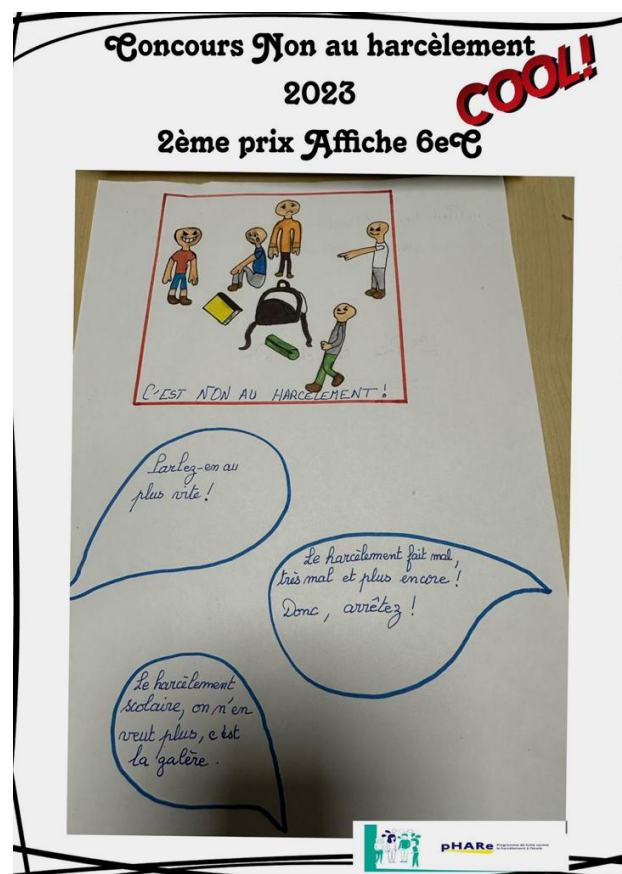 Concours Non au harcèlement
2023
COOL!
2ème prix Affiche 6eC
C'EST NON AU HARCELEMENT !
Parlez-en au
plus vite !
Le harcèlement fait mal,
très mal et plus encore !
Donc, arrêtez !
Le harcèlement
scolaire, on n'en
veut plus, c'est
la galère.
pHARe
Programme de lutte contre
le harcèlement à l'école